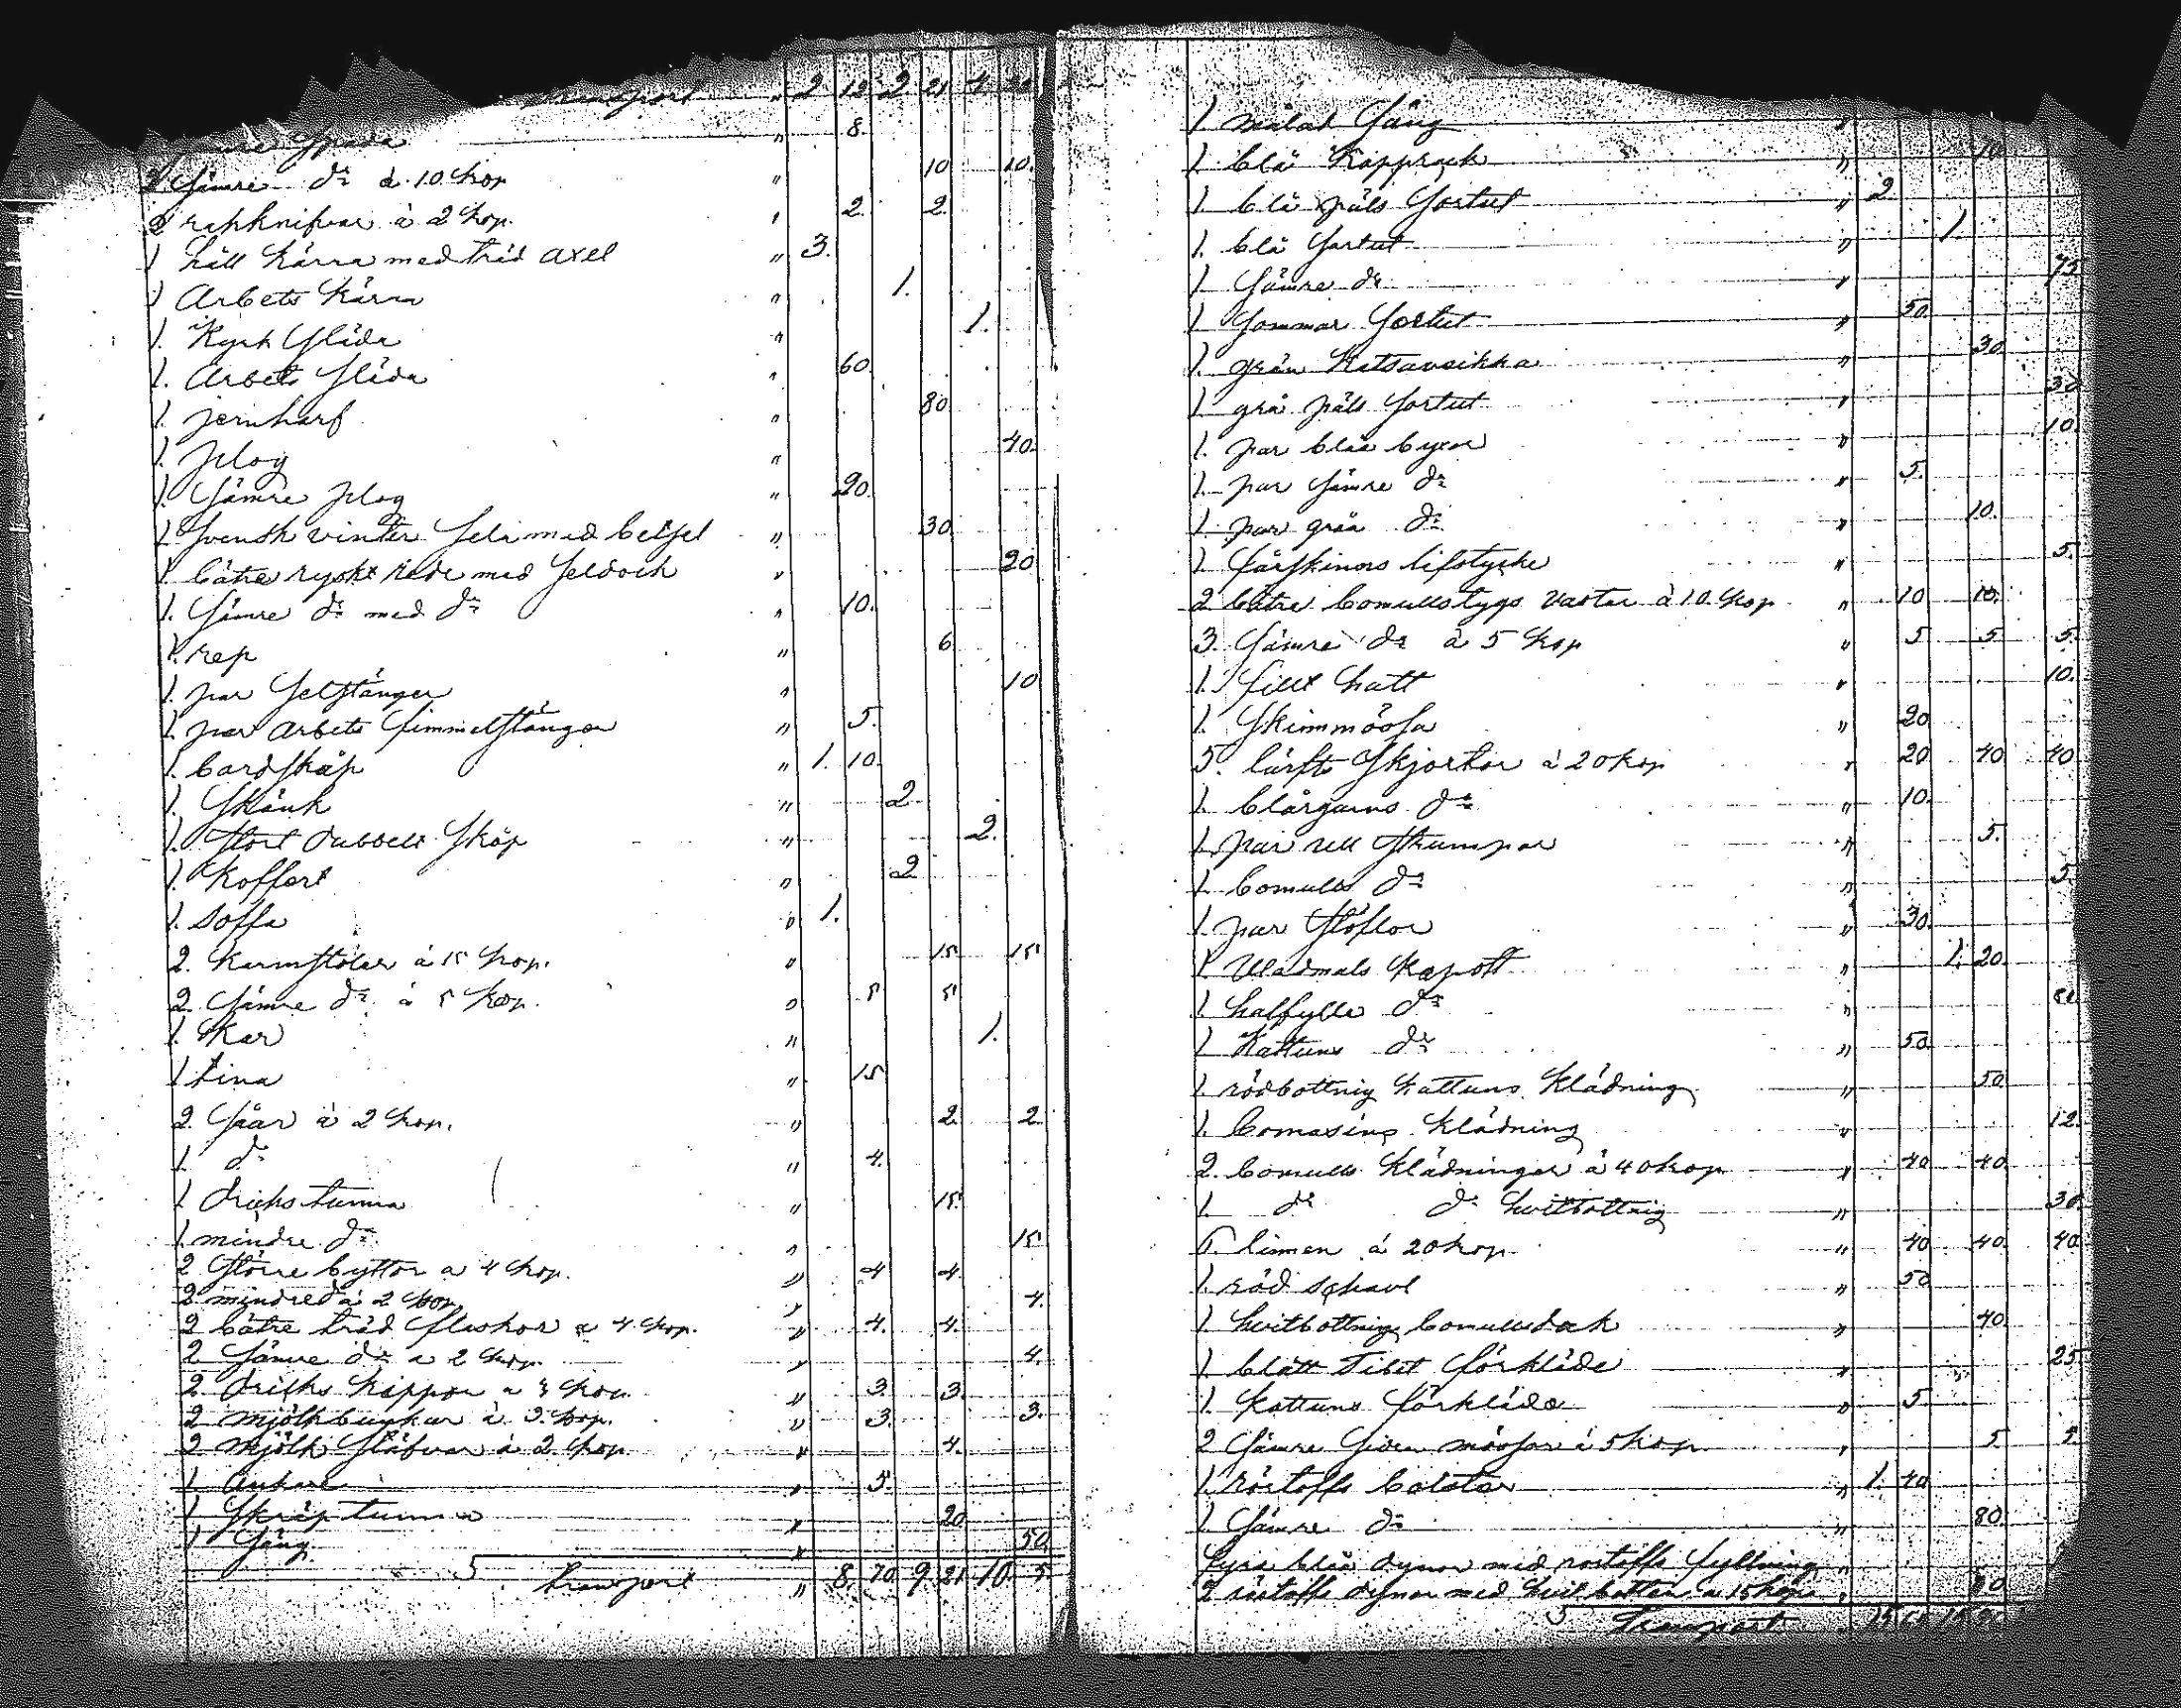 Transport " 2 12 2 21 4
Spada " 8.
2 sämre do à 10 kop " 10 10.
2 rakknifvar à 2 kop. " 2. 2.
1 häll kärra med träd axel " 3.
1 Arbets kärra " 1.
1. Kyrk Släda " 1.
1. Arbets Släda " 60.
1. jernharf " 80
1. plog " 40.
1. Sämre plog " 20.
1 Svensk vinter Sela med betsel " 30
1 bätre ryskt rede med Seldock " 20
1. Sämre do med do " 10.
1. rep " 6
1. par Selstänger " 10
1. par Arbets fimmelstänger " 5.
1. bordskåp " 1. 10.
1. Skänk " 2
1. Stort dubbelt Skåp " 2.
1. Koffert " 2
1. Soffa " 1.
2. Karmstolar à 15 kop. " 15 15
2. Sämre do à 5 kop. " 5 5
1. Kar " 1.
1 tina " 15
2. Såar à 2 kop. " 2. 2.
1. do " 4.
1 dricks tunna " 15.
1. mindre do " 15
2 Större byttor a 4 kop. " 4 4.
2 mindre do à 2 kop. " 4.
2 bätre träd flaskor a 4 kop. " 4. 4.
2 Sämre do a 2 kop. " 4.
2 dricks kappor a 3 kop. " 3. 3.
2 mjölkbunkar à 3 kop. " 3. 3.
2 mjölk Stäfvar à 2 kop " 4.
1 Ankare " 5.
1 Skräp tunna " 20
1 Säng. " 50
S transport " 8. 70. 9. 21 10. 5
1 målad Säng "
1. blå Kapprock " 10
1. blå päls Sortut " 2
1. blå Sortut " 1.
1 Sämre do " 75
1 Sommar Sortut " 50.
1. grön Katsaveikka " 30
1 grå päls Sortut " 30
1. par blåa byxor " 10.
1. par Sämre do " 5.
1. par gråa do " 10.
1. fårskinns lifstycke " 5.
2 bätre bomullstygs västar à 10. kop. " 10 10.
3. Sämre do à 5 kop " 5 5. 5.
1. filt hatt " 10.
1. Skinmössa " 20
5. lärfts Skjortor à 20 kop " 20 40 40
1. blårgarns do " 10.
1. par ull Strumpor " 5.
1. bomulls do " 5.
1. par Stöflor " 30.
1 Vladmals Kapott " 1. 20.
1. halfylle do "
1 Kattuns do " 50
1. rödbottnig kattuns Klädning " 50
1. bomasins Klädning " 12.
2. bomulls Klädningar à 40 kop " 40 40
1. do do hvitbottnig " 30.
linnen à 20 kop " 40 40. 40.
1. röd schavl " 50
1. hvitbottnig bomullsduk " 40.
1. blått Tibet förkläde " 25.
1. Kattuns förkläde " 5.
2 Sämre mössor à 5 kop " 5. 5.
1. rostoffs bolstar " 1. 40
1. Sämre do " 80.
Fyra blåa dynor med rostoffs fyllning "
2 rostoffs dynor med hvit botten a 15 kop "
S Transport